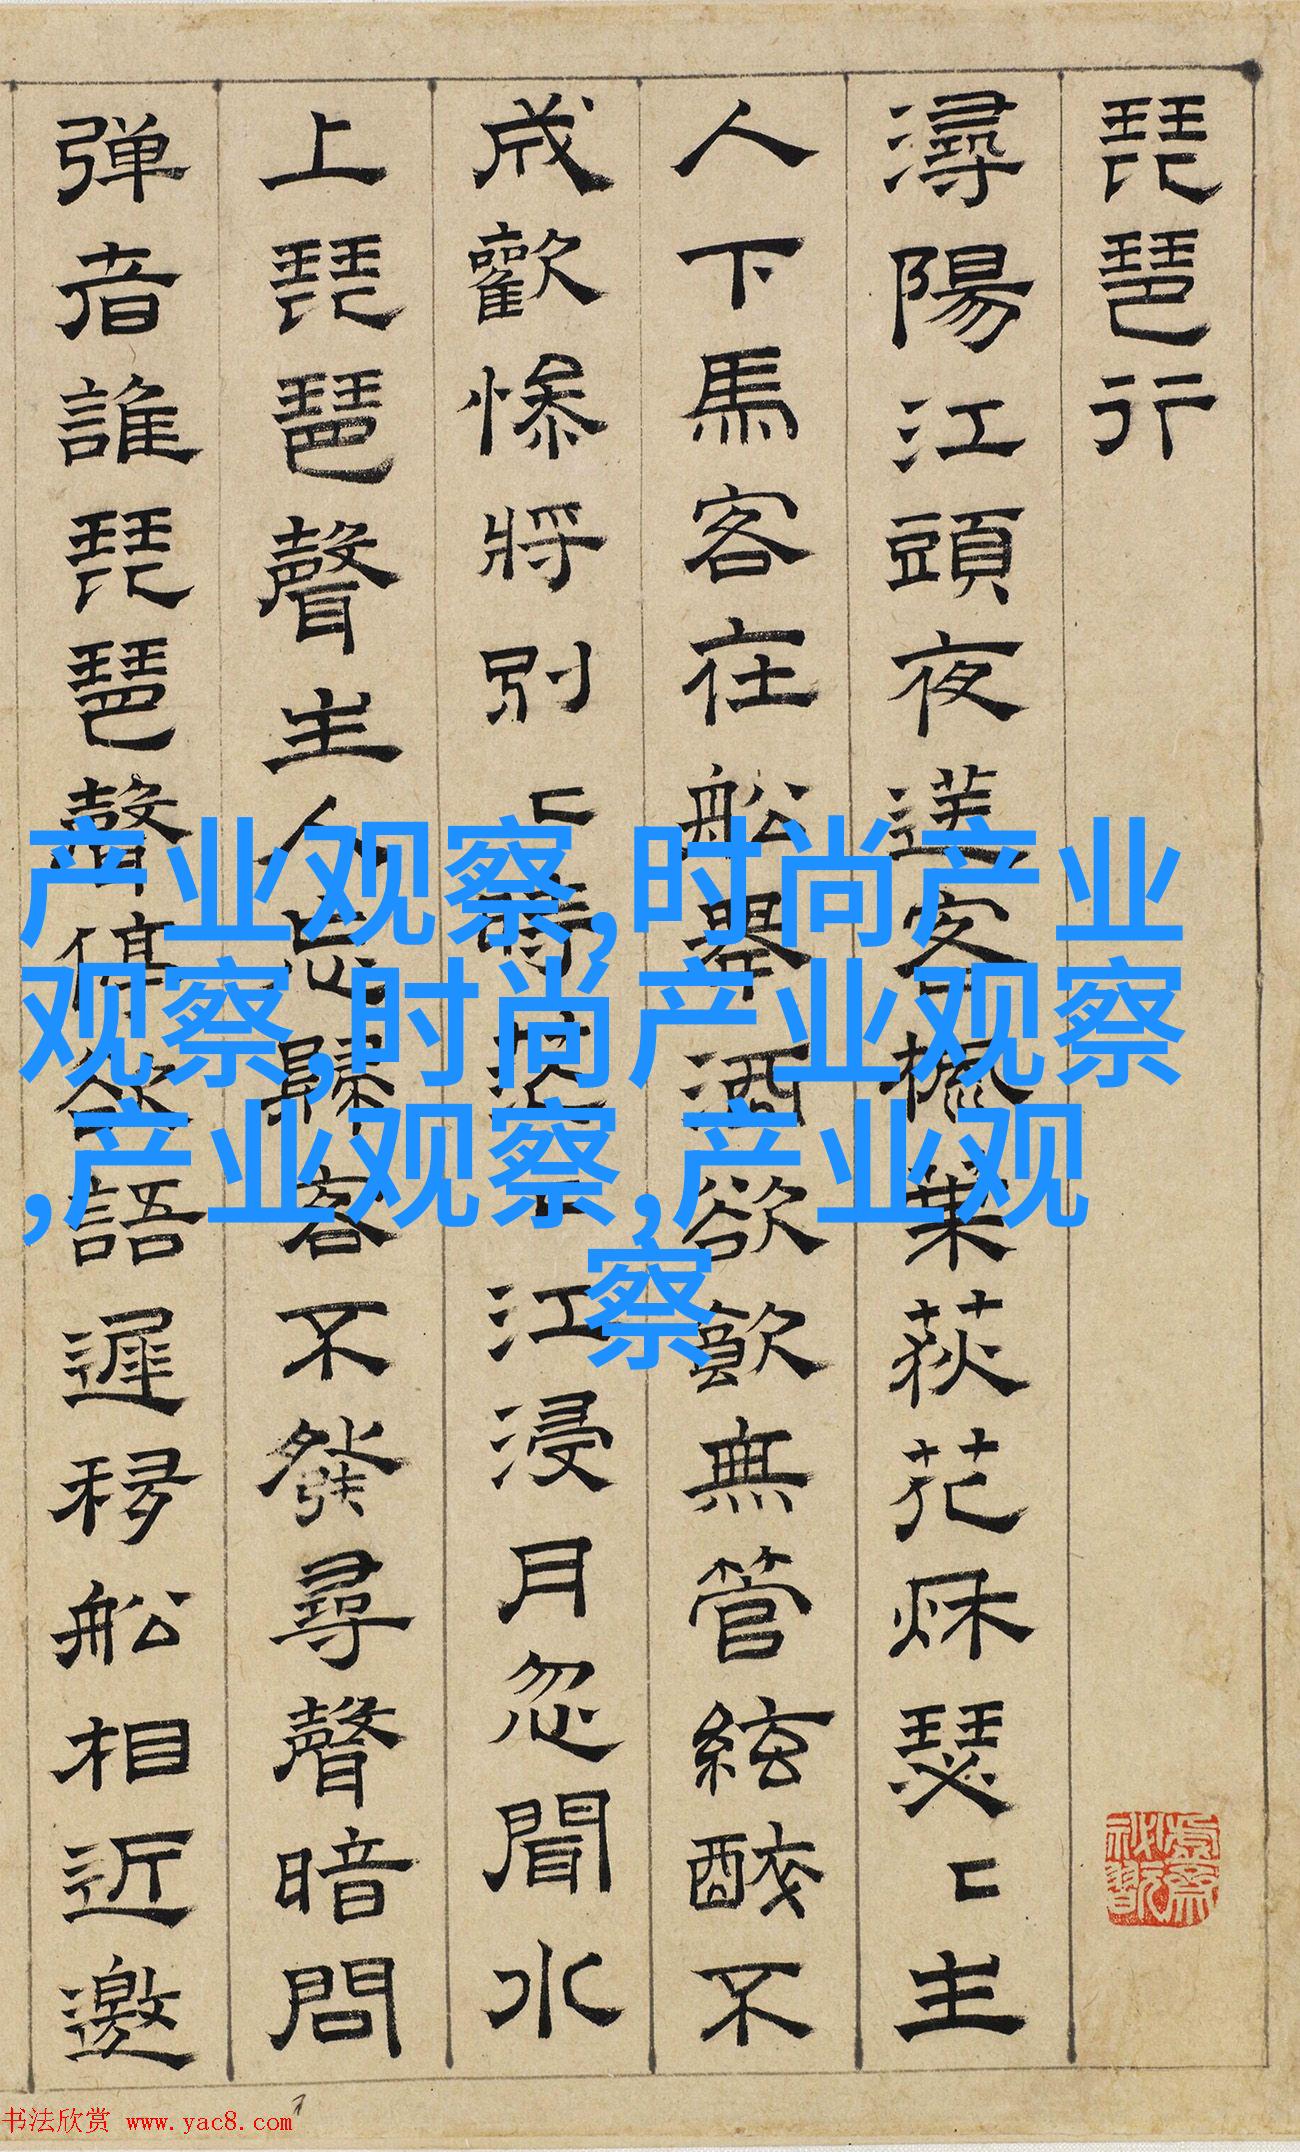 琵琶行
潯陽江頭夜送客楓葉荻花秌瑟〻主
人下馬客在船舉酒欲飲無管絃醉不
成歡慘將別〻時茫〻江浸月忽聞水
上琵琶聲主人忘歸客不發尋聲暗問
弹者誰琵琶聲停欲語遲移船相近邀
产业观察,时尚产业
观察,时尚产业观察
,产业观察,产业观
察
书法欣赏 www.yac8.com